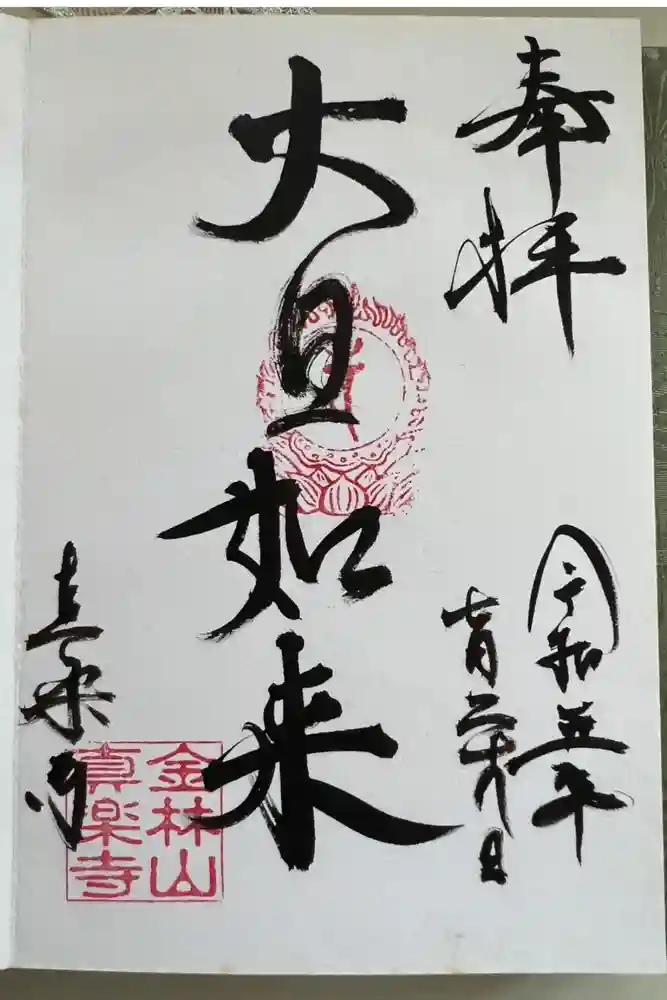 奉拝
令和五年
七月二十九日
大日如来
真楽寺
金林山
真楽寺